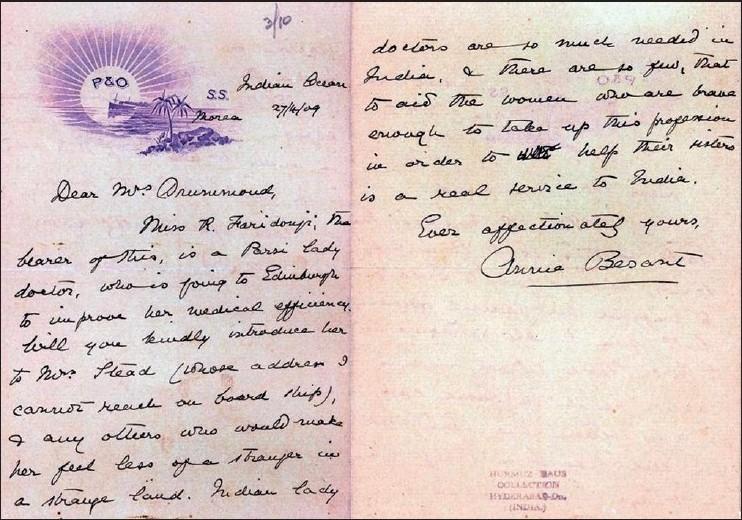 3/10
P&O
S.S. Indian Ocean
Morea 27/4/09
Dear Mrs Drummond,
Miss R. Faridonji, the
bearer of this, is a Parsi lady
doctor, who is going to Edinburgh
to improve her medical efficiency.
Will you kindly introduce her
to Mrs Stead (whose address I
cannot reach on board ship),
& any others who would make
her feel less of a stranger in
a strange land. Indian lady
doctors are so much needed in
India, & there are so few, that
to aid the women who are brave
enough to take up this profession
in order to help their sisters
is a real service to India.
Ever affectionately yours,
Annie Besant
HURMUZ KAUS
COLLECTION
HYDERABAD-Dn.
(INDIA.)